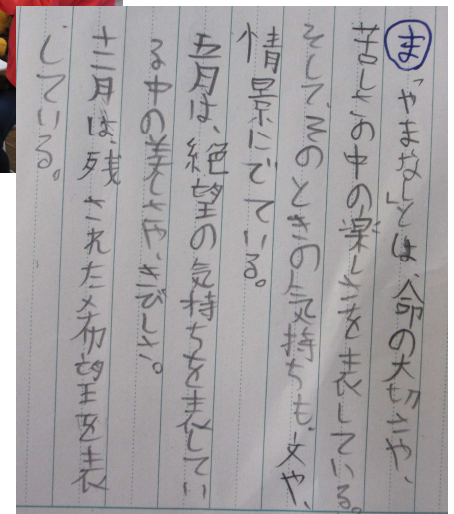 ま「やまなし」とは、命の大切さや、
苦しさの中の楽しさを表している。
そして、そのときの気持ちも、文や、
情景にでている。
五月は、絶望の気持ちを表してい
る中の美しさや、きびしさ。
十二月は、残された希望を表
している。